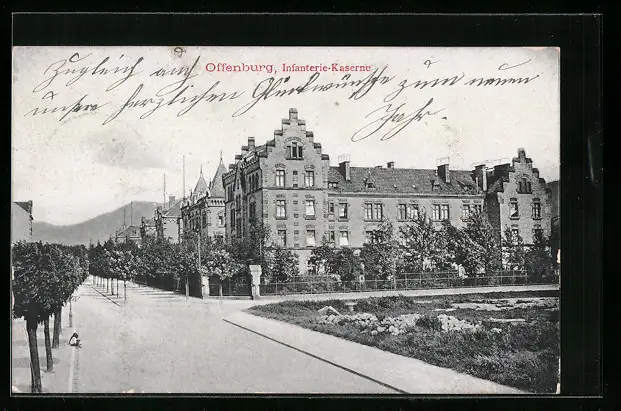 Offenburg, Infanterie-Kaserne
Zugleich auch
unsere herzlichen Glückwünsche zum neuen
Jahr.